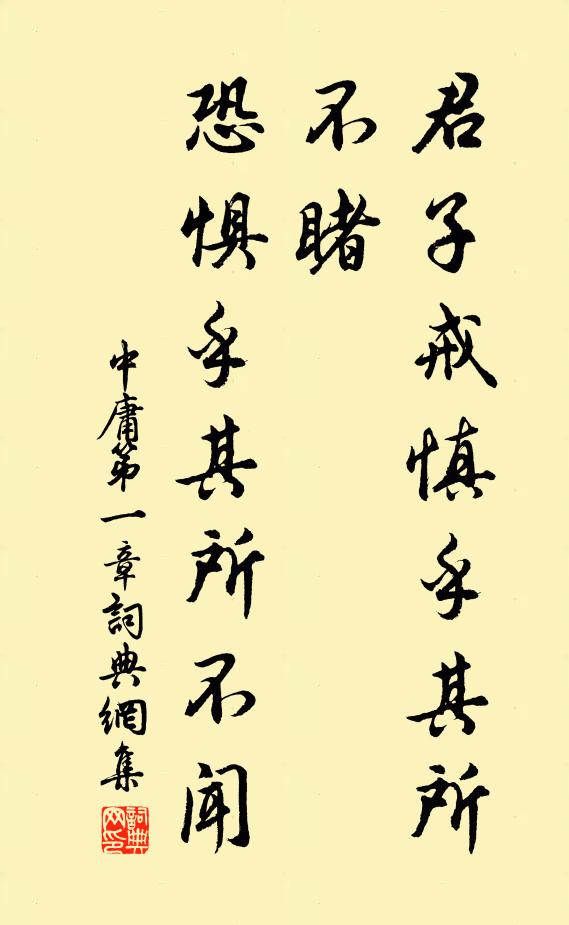 君子戒慎乎其所
不睹
恐惧乎其所不闻
中庸第一章詞典網集
詞典
网印